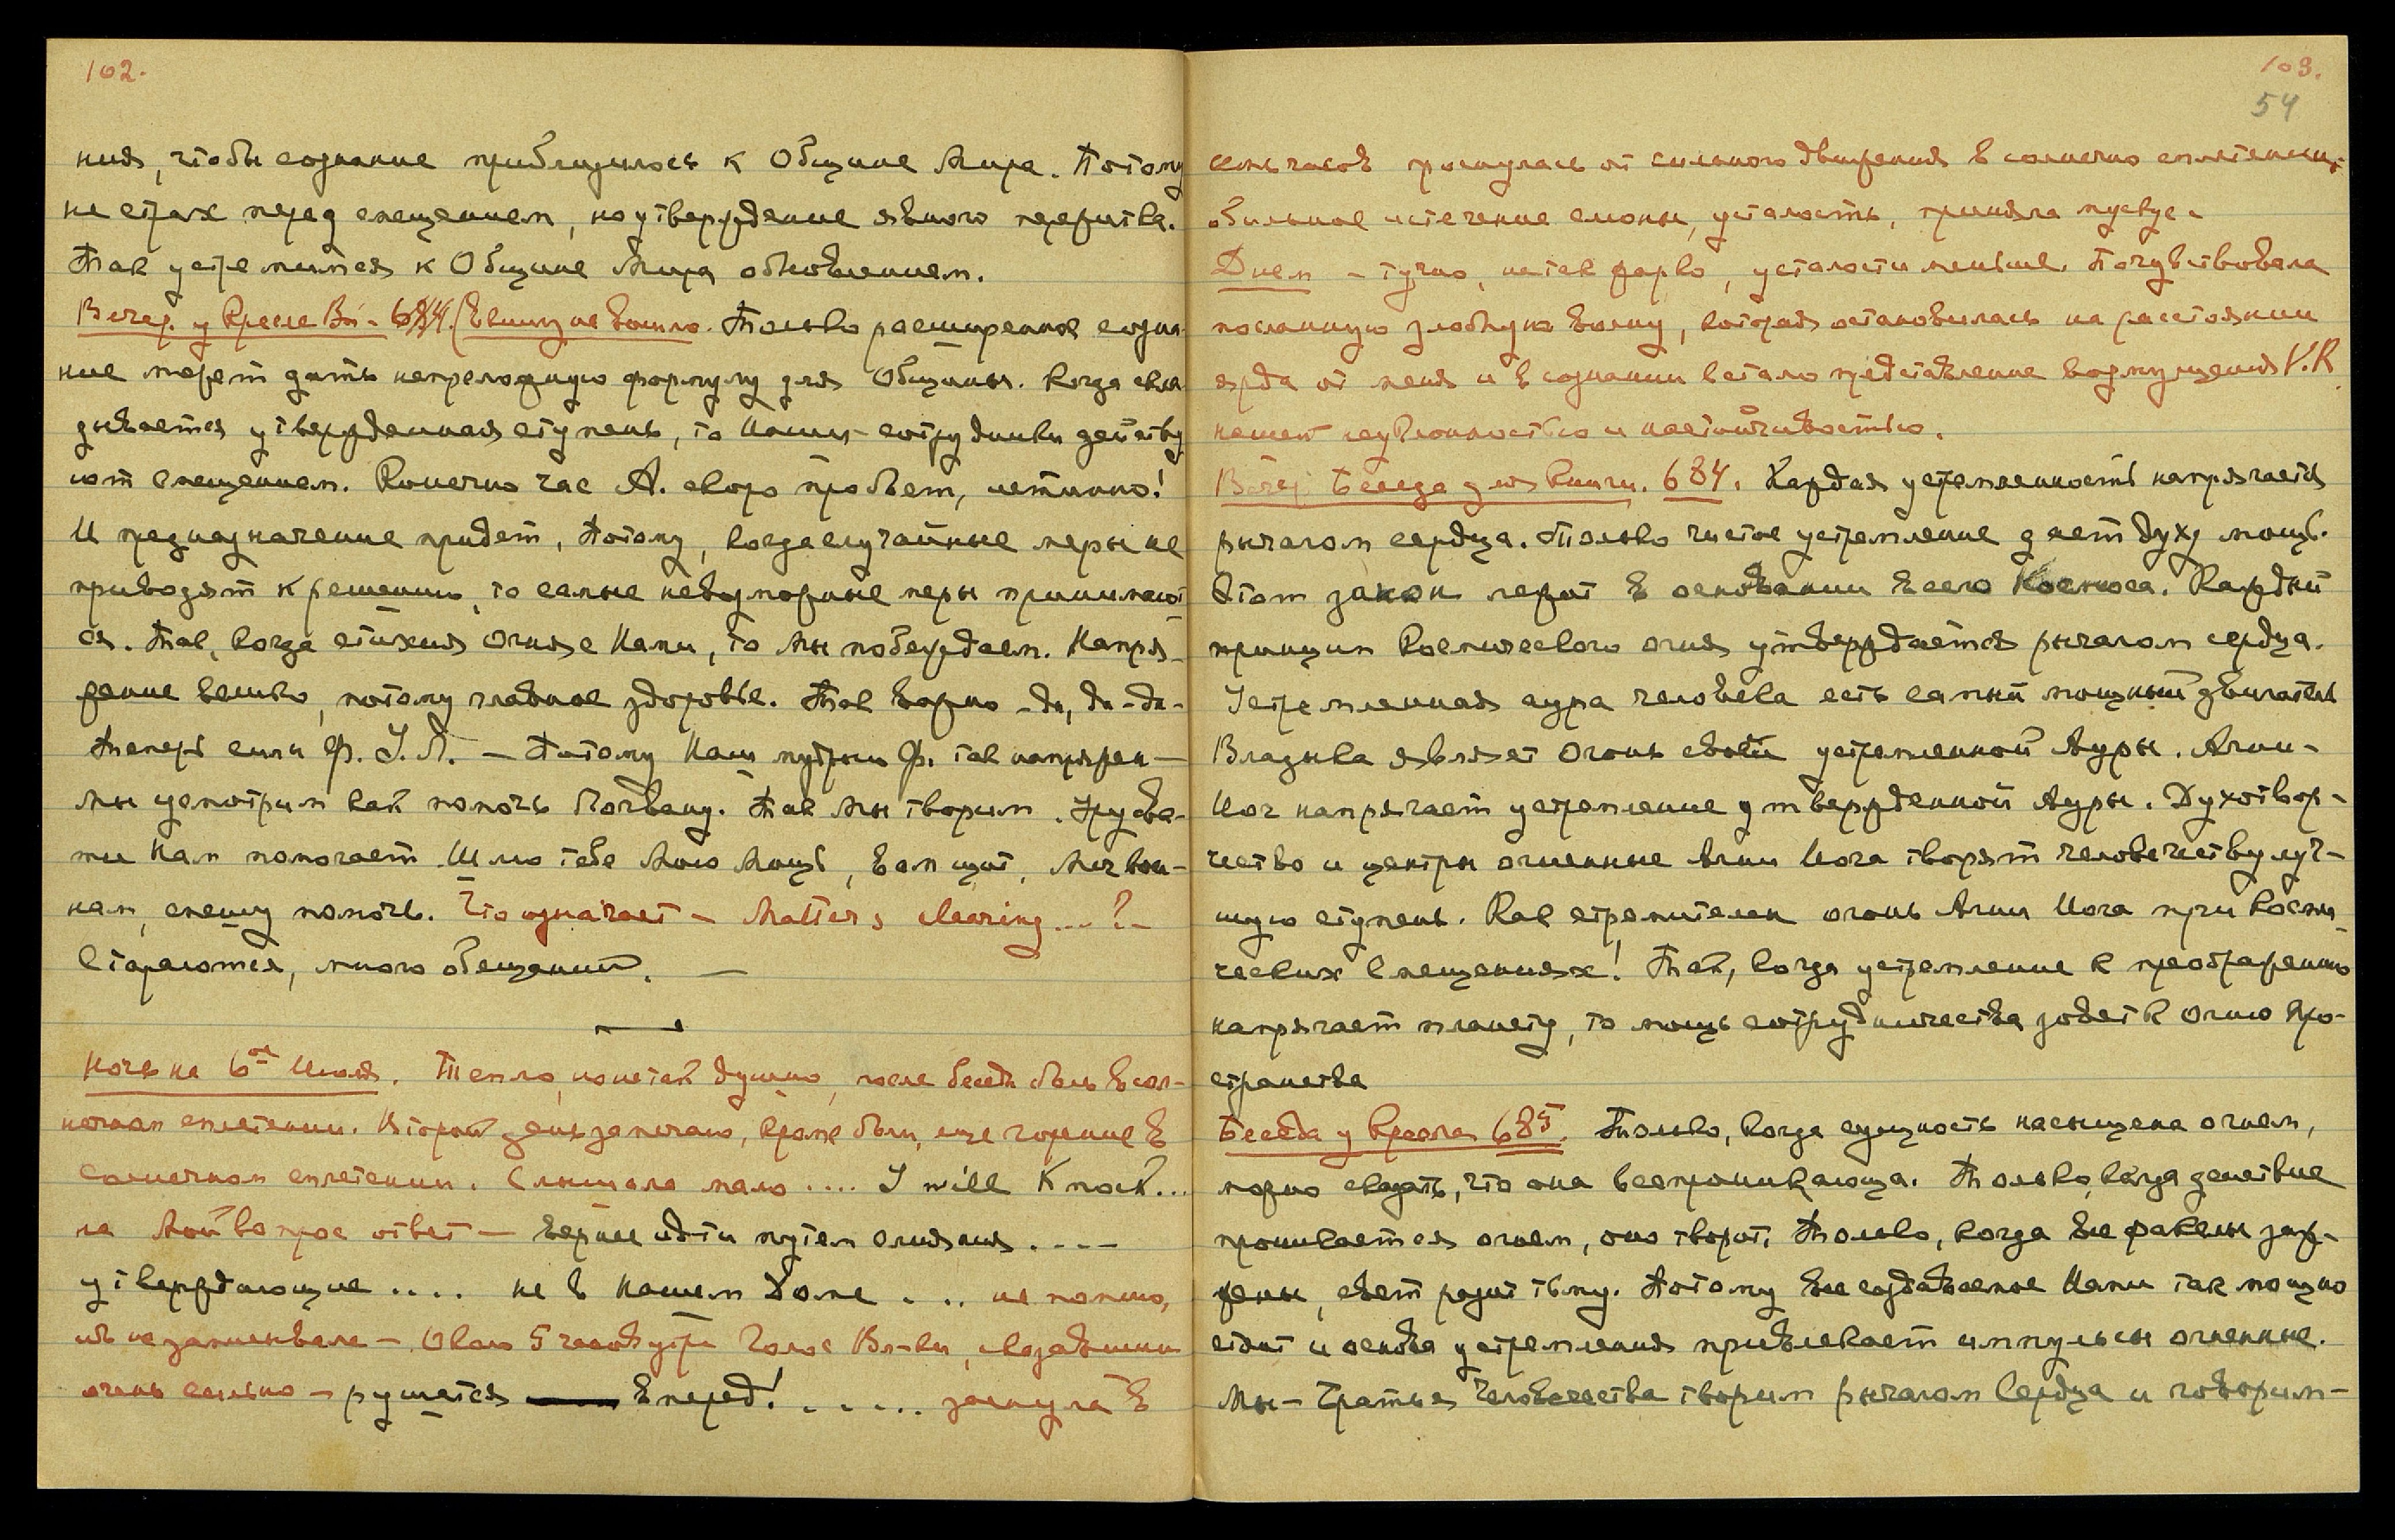 102.
ния, чтобы сознание приблизилось к Общине Мира. Потому
не страх перед смещением, но утверждение явного пережитка.
Так устремимся к Общине Мира обновлением.
Вечер. у Кресла Вл- 684. (В книгу не вошло. Только расширенное созна-
ние может дать непреложную формулу для Общины. Когда скла-
дывается утвержденная ступень, то Наши сотрудники действу-
ют смещением. Конечно час А. скоро пробьет, истинно!
И предназначение придет, потому, когда случайные меры не
приводят к решению, то самые невозможные меры принимают-
ся. Так, когда стихия Огня с Нами, то Мы побеждаем. Напря-
жение велико, потому главное здоровье. Так верно - да, да - да -
Теперь или Ф. У. Л. — Потому Наш мудрый Ф. так напряжен —
Мы усмотрим как помочь Логвану. Так Мы творим. Урусва-
ти Нам помогает. Шлю тебе Мою Мощь, вам щит, Меч вои-
нам, спешу помочь. Что означает — Matters clearing ... ? —
Стараются, много обещаний. —
Ночь на 6ое Июля. Тепло, но не так душно, после беседы боль в сол-
нечном сплетении. Второй день замечаю, кроме боли, еще горение в
солнечном сплетении. Слышала мало .... I will knock...
на мой вопрос ответ — вернее идти путем слияния . . . .
утверждающие .... не в нашем Доме ... не помню,
ибо не записывала — Около 5 часов утра Голос Вл-ки, сказавший
очень сильно — рушатся Вперед! ...... заснула в
103.
54
семь часов проснулась от сильного движения в солнечно сплетении,
обильное истечение слюны, усталость, приняла мускус.
Днем - тучно, не так жарко, усталости меньше. Почувствовала
посланную злобную волну, которая остановилась на расстоянии
ярда от меня и в сознании встало представление возмущения V. R.
нашей неуклонностью и настойчивостью.
Вечер. Беседа для Книги. 684. Каждая устремленность напрягается
рычагом сердца. Только чистое устремление дает духу мощь.
Этот закон лежит в основании всего Космоса. Каждый
принцип Космического огня утверждается рычагом сердца.
Устремленная аура человека есть самый мощный двигатель
Владыка являет Огонь своей устремленной Ауры. Агни-
Йог напрягает устремление утвержденной Ауры. Духотвор-
чество и центры огненные Агни Йога творят человечеству луч-
шую ступень. Как стремителен огонь Агни Йога при Косми-
ческих смещениях! Так, когда устремление к преображению
напрягает планету, то мощь сотрудничества зовет к Огню Про-
странства
Беседа у Кресла 685. Только, когда сущность насыщена огнем,
можно сказать, что она всепроникающа. Только, когда действие
проникается огнем, оно творит. Только, когда все факелы заж-
жены, свет разит тьму. Потому все создаваемое Нами так мощно
стоит и основа устремления привлекает импульсы огненные.
Мы - Братья Человечества творим рычагом Сердца и говорим -